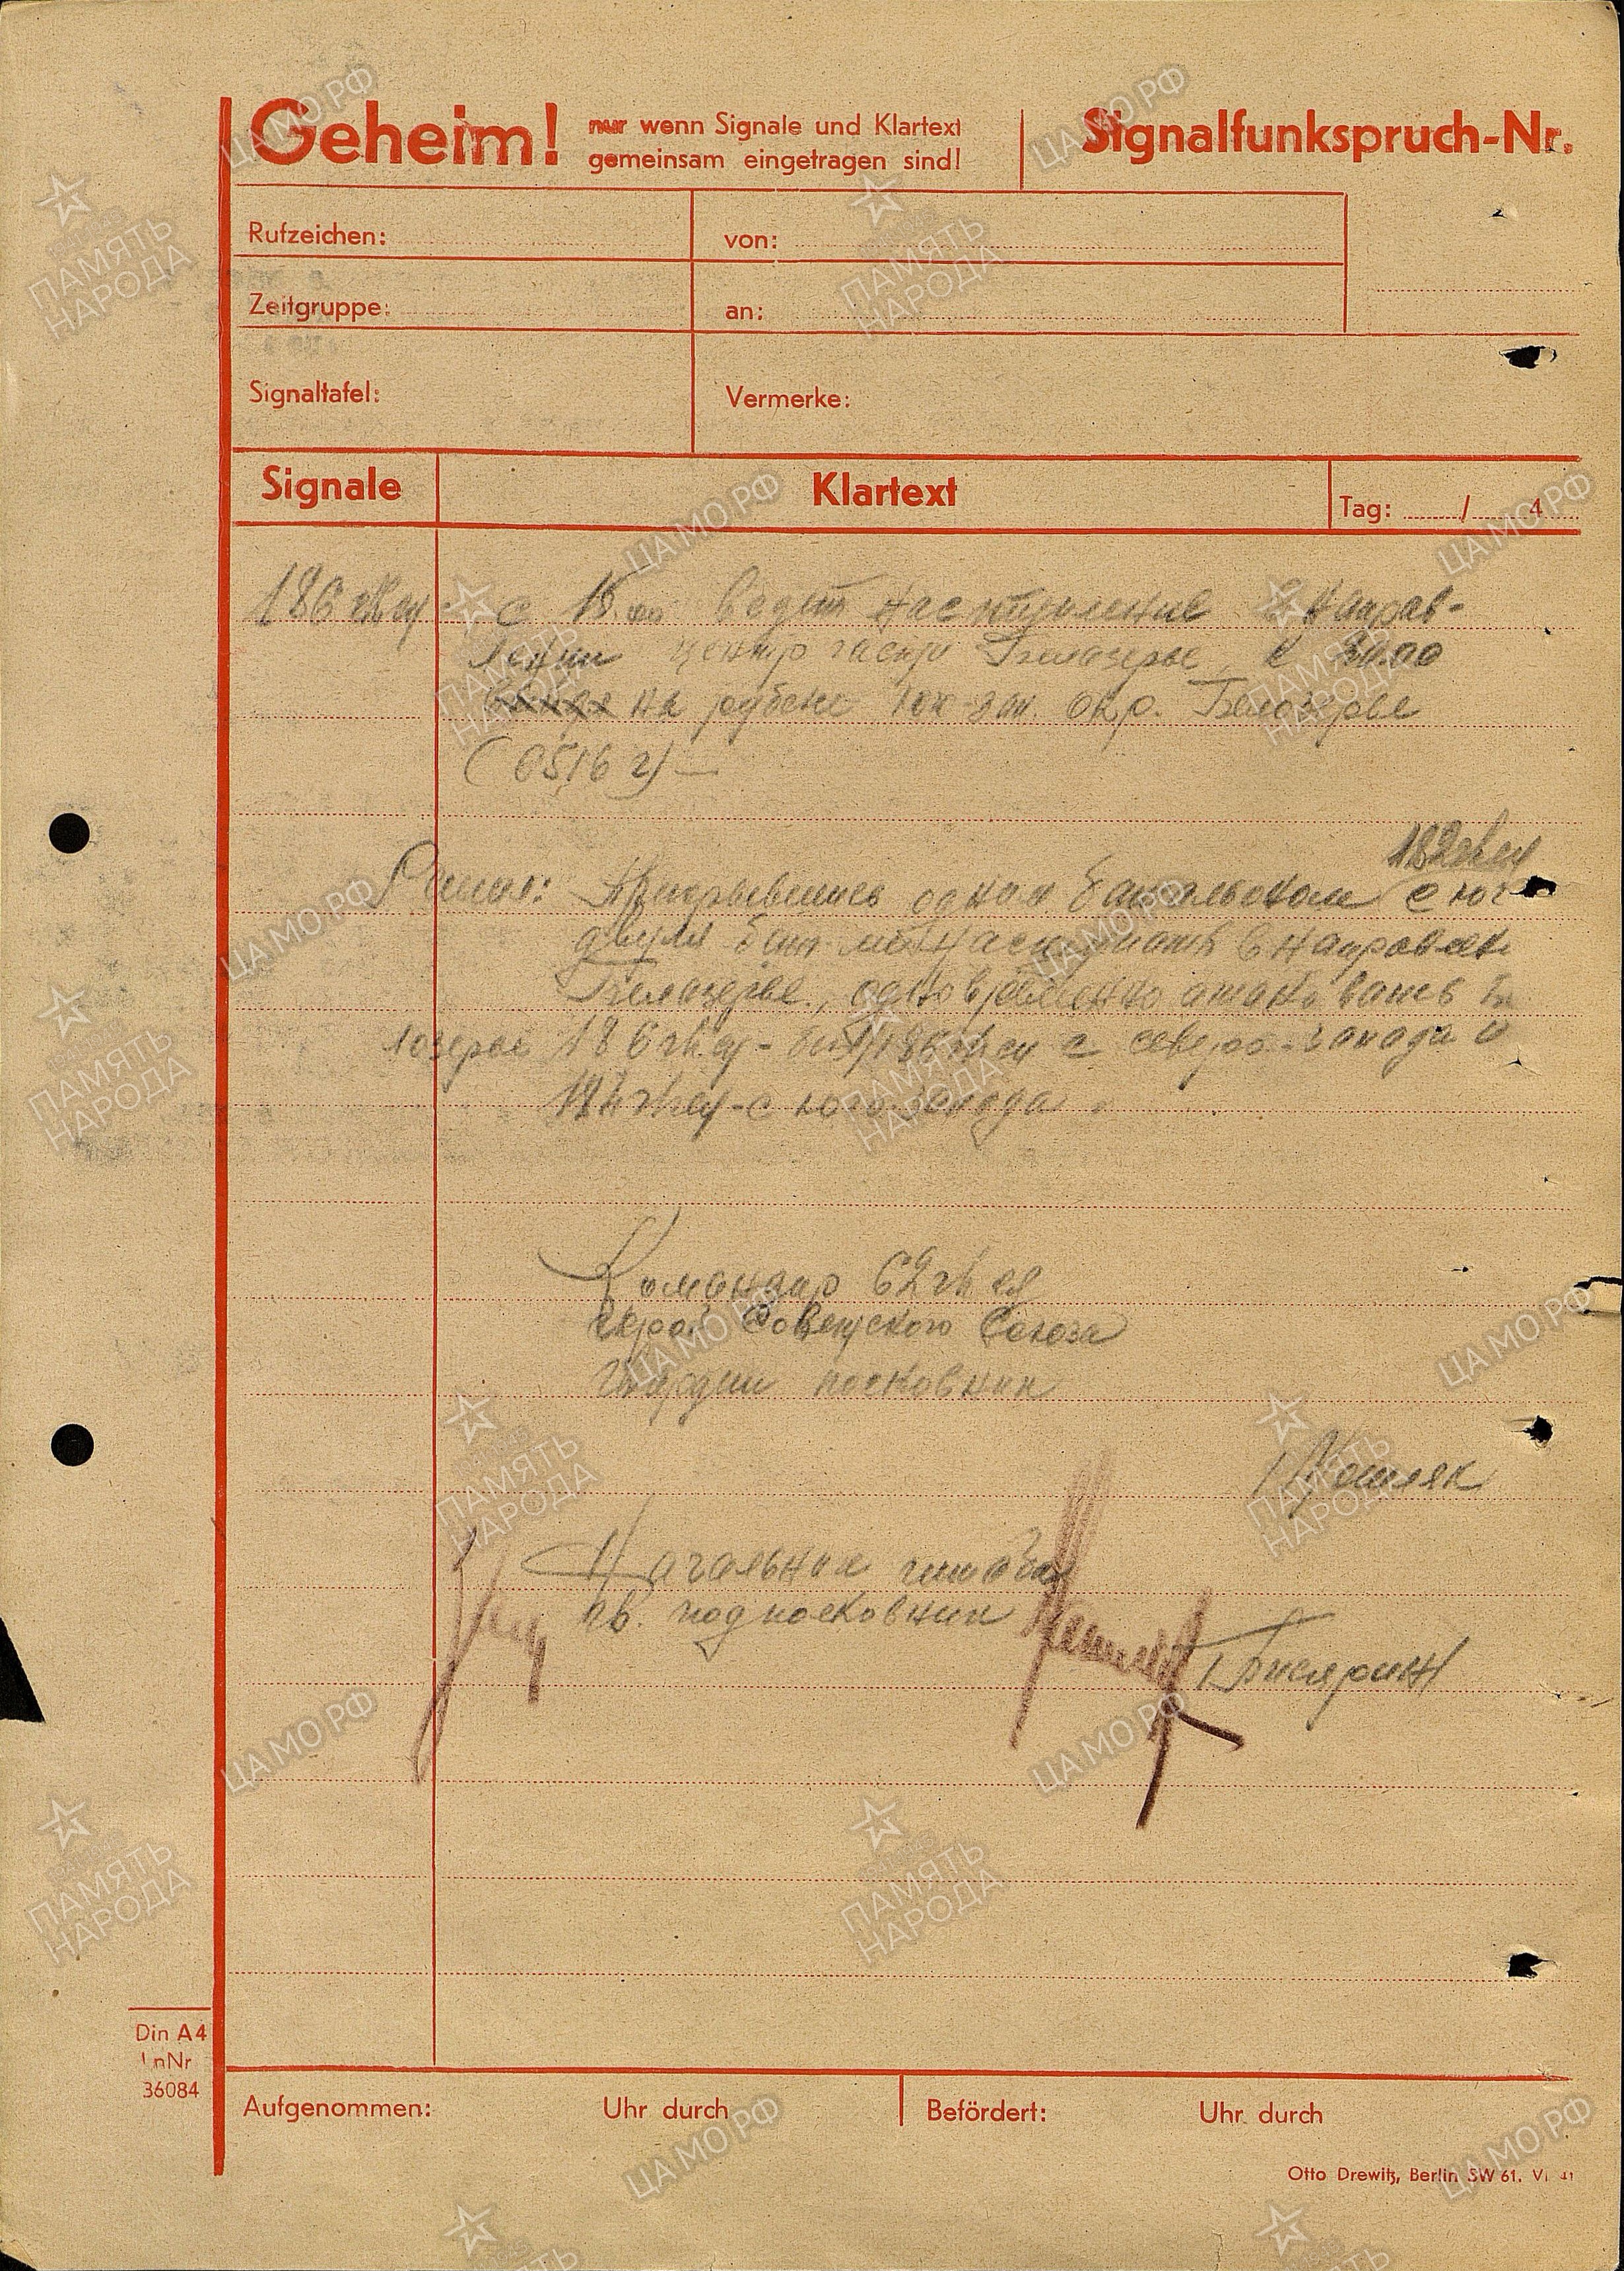 Geheim! nur wenn Signale und Klartext
gemeinsam eingetragen sind!
Signalfunkspruch-Nr.
Rufzeichen: von:
Zeitgruppe: an:
Signaltafel: Vermerke:
Signale Klartext Tag: / 4
186 гв сп - с 15.00 ведет наступление в направ-
лении центр части Белозерье, к 20.00
на рубеже юж-зап. окр. Белозерье
(6516 г) —
182 гв сп
Решил: Прикрывшись одним батальоном с юга
двумя бат. наступать в направлен
Белозерье, одновременно атаковать Бе
лозерье 186 гв сп с северо-запада и
184 гв сп - с юго запада
Командир 62 гв сд
Герой Советского Союза
Гвардии полковник
Мошляк
Начальник штаба
гв. подполковник
Din A4
LnNr
36084
Aufgenommen: Uhr durch Befördert: Uhr durch
Otto Drewitz, Berlin SW 61. VI 41
ЦАМО РФ
ПАМЯТЬ НАРОДА